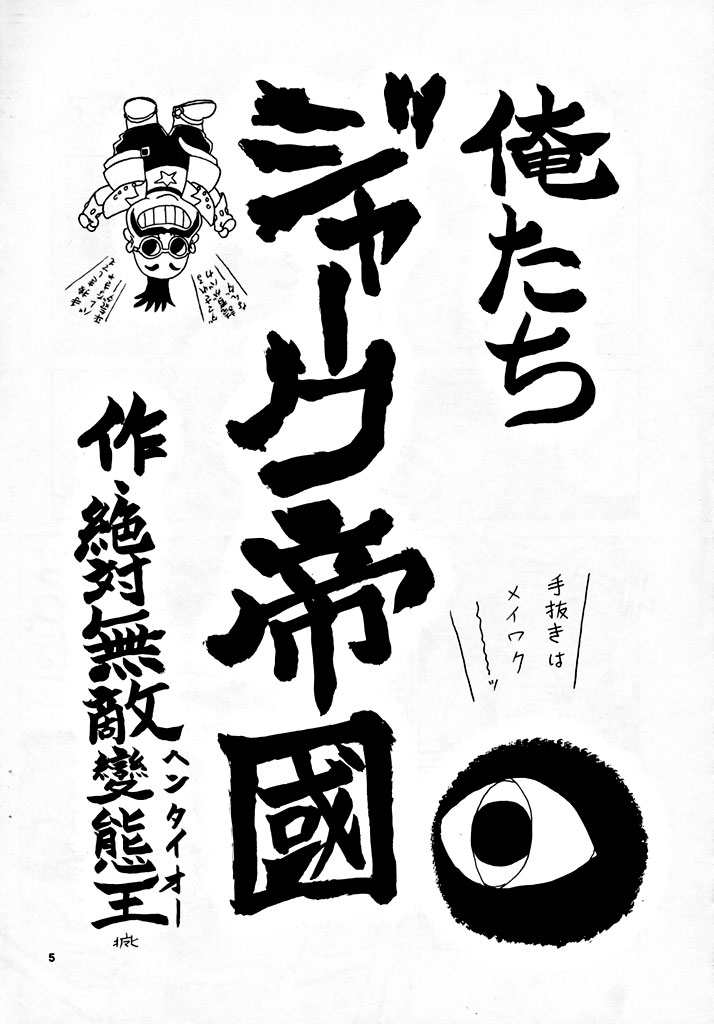 俺たち
ジャーク帝國
手抜きは
メイワク
〜〜ッ
作、絶対無敵變態王
ヘンタイオー
5